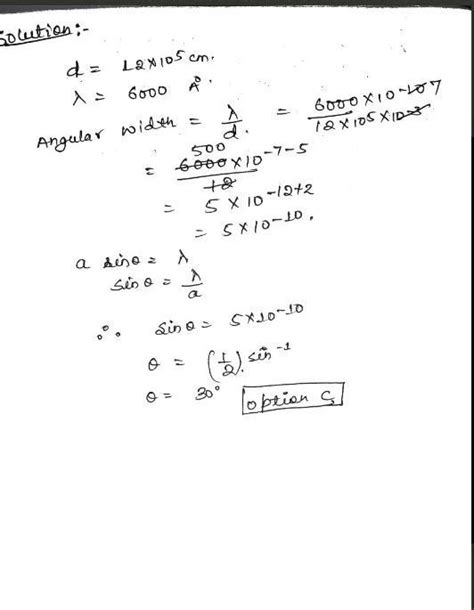 Solution:-
d = 12×10⁵ cm.
λ = 6000 A°
Angular width = λ/d. = 6000×10⁻¹⁰ ⁷/12×10⁵×10⁻³
= 500 6000×10⁻⁷⁻⁵/12
= 5×10⁻¹²⁺²
= 5×10⁻¹⁰.
a sinθ = λ
sinθ = λ/a
∴ sinθ = 5×10⁻¹⁰
θ = (1/2). sin⁻¹
θ = 30° option C,